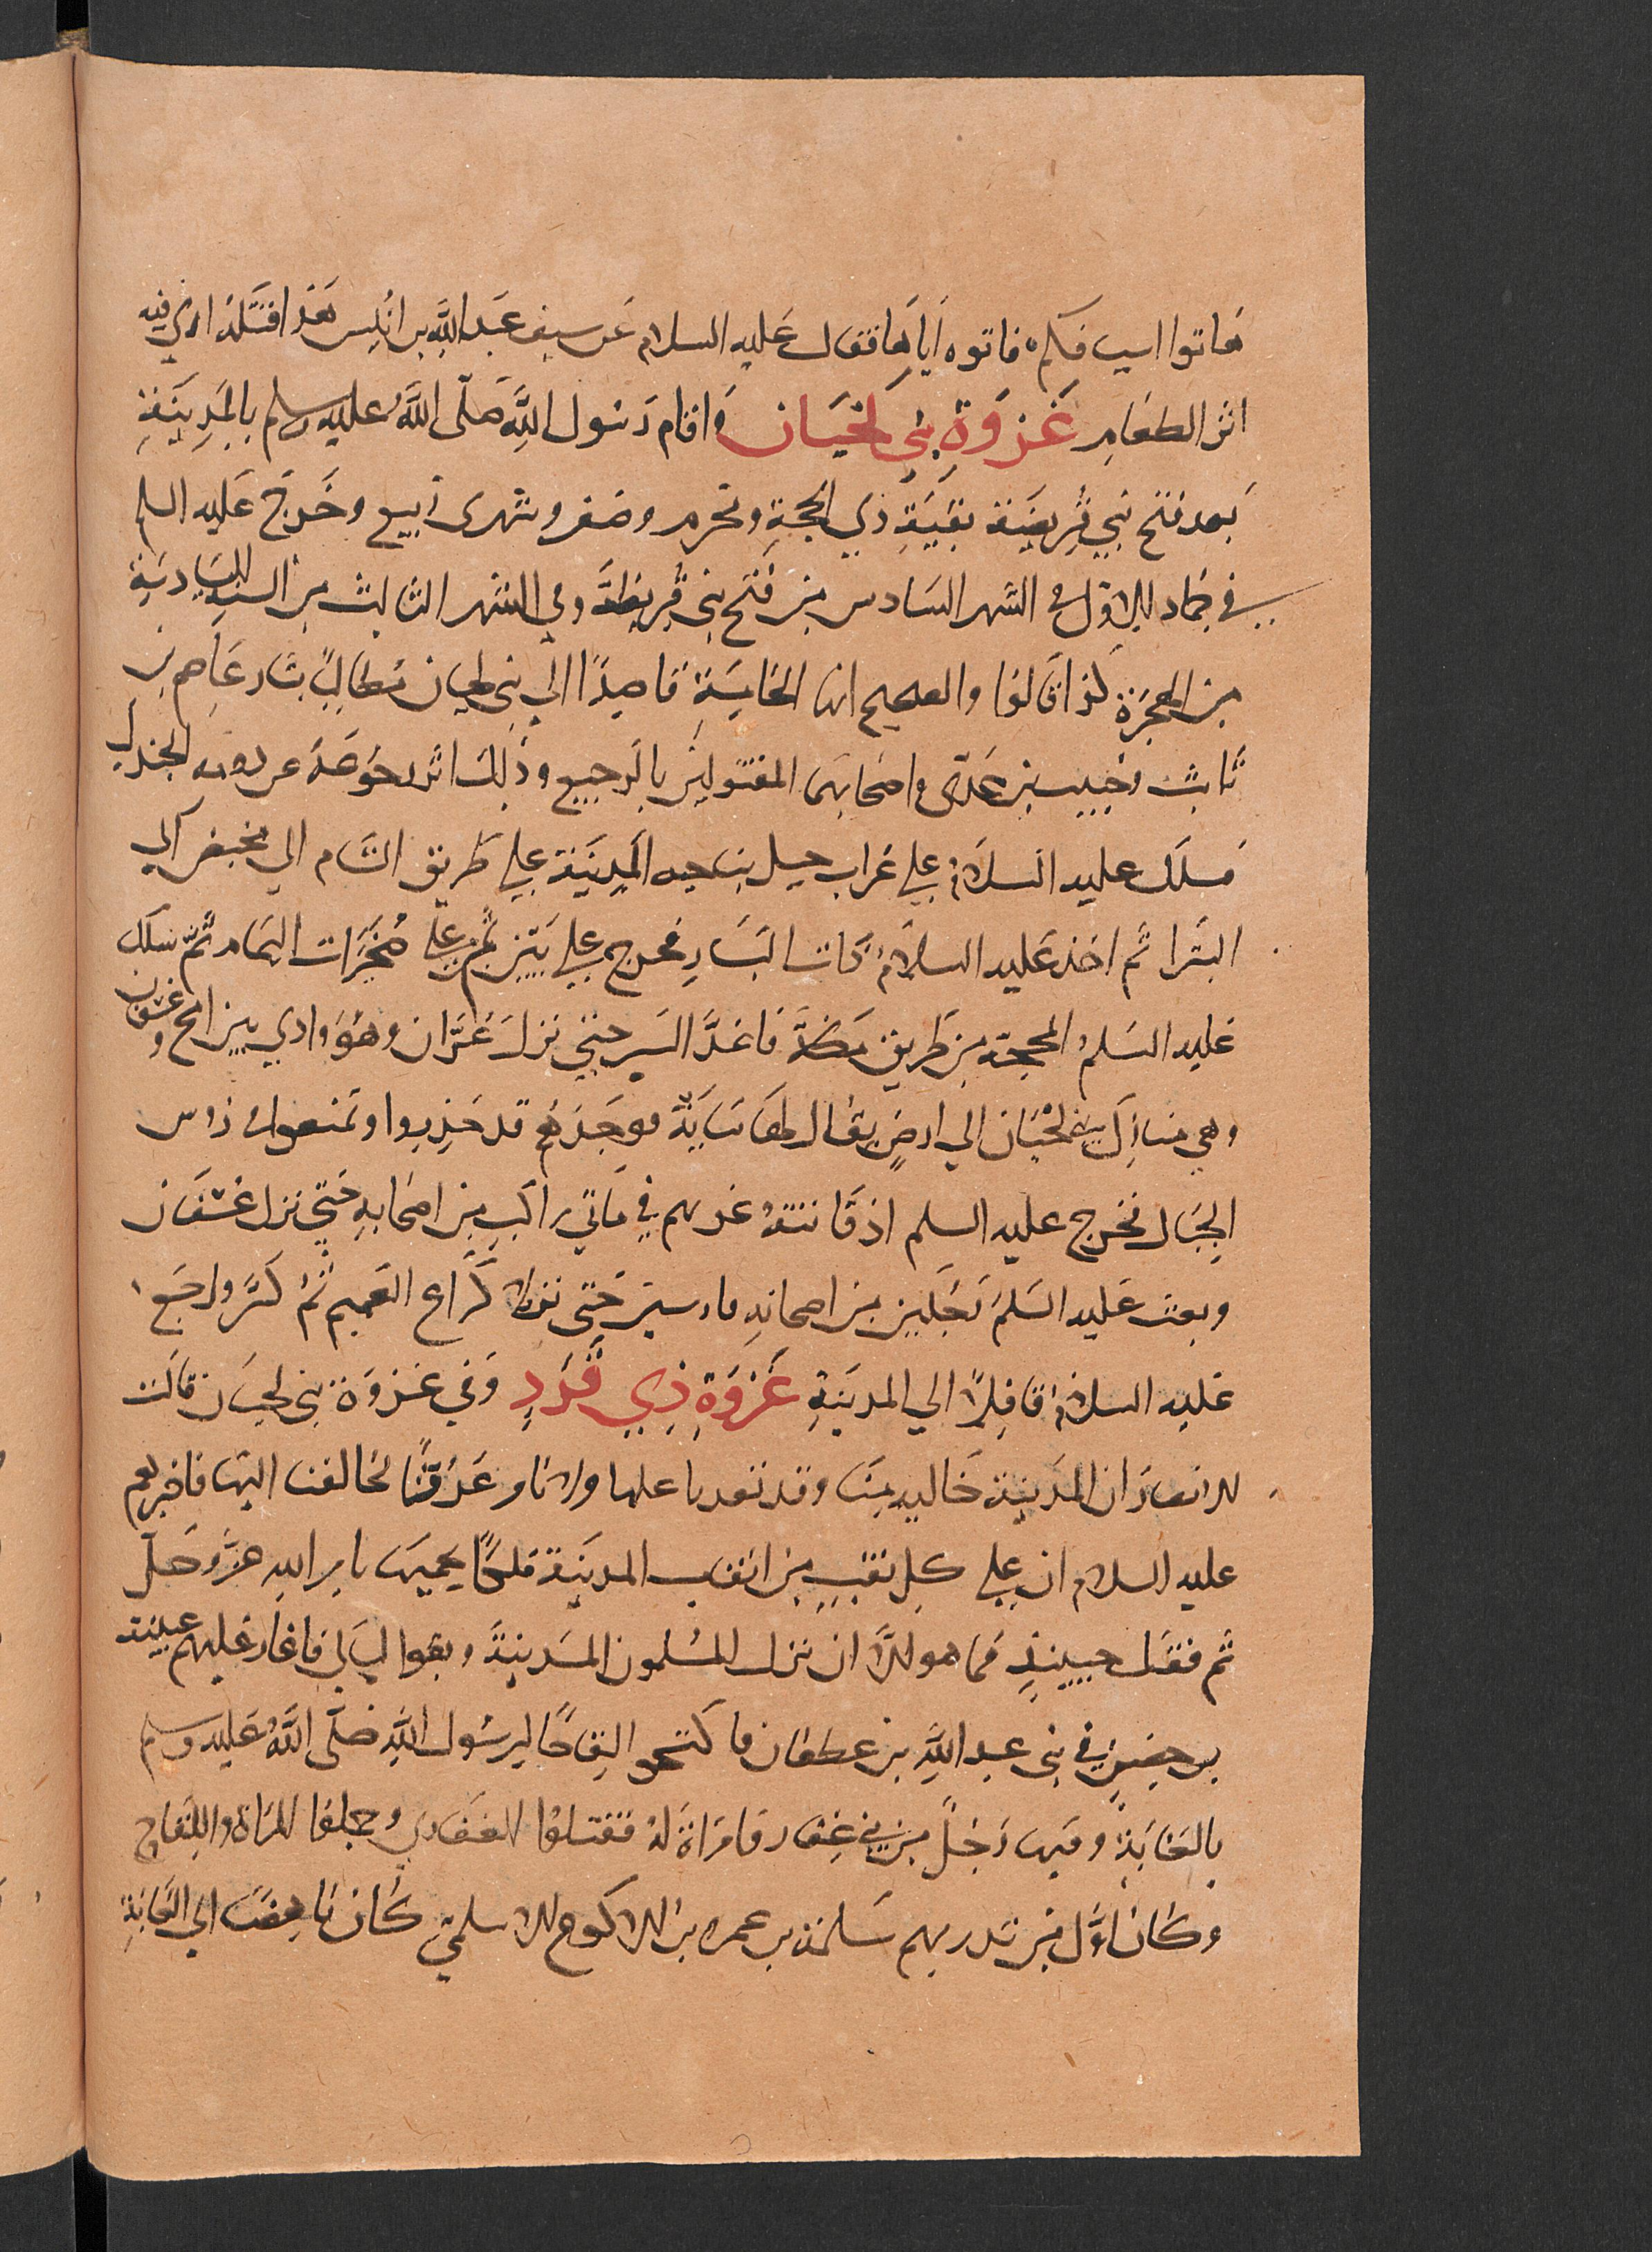 هَاتوا اسيافكم فاتوه اَياهَا فقال عَليه السلام عَن سيف عَبد اللَّه بن انيس هَذَا قتَلهُ ارى فيه
اثر الطعَامِ غَزوَة بَني لحيَان وَاقام رَسُول اللَّهِ صَلّى اللَّهُ عليه وسلم بالمَدِينَةِ
بَعد فتح بَني قُريضَة بَقيَةِ ذي الحجةِ ومحرم وصَفر وشهرى ربيع وخَرَج عَليه السلم
في جمَاد الاوّل في الشهر السَادس مِن فَتح بنى قُريظَة وفي الشهر الثالث من السنة السَادسَةِ
مِن الهجرَة كَذا قَالوا والصحيح انها الخامِسَة قاصِدًا الي بني لحيان مُطالبً بثار عَاصم بن
ثَابت وخُبيب بن عَدّى واصحَابهمَا المقتولينَ بالرَجيع وذَلِك اثر رجوعَهُ من دومه الجندل
فسَلك عليه السلامُ علي غراب جبل بناحيه المدِينَة علي طَريق الشام الي مخيض الي
البَترا ثم اخذ عَليه السلامُ ذات اليسَارِ فخرج علي يَيَن ثم علي صُخيرَات اليمَام ثمّ سَلك
عَليه السَلمُ المحجّه من طَريق مَكةَ فاغذَّ السَير حتي نزلَ غُرَّان وهُوَ وادي بين امج وعسفان
وهي منَازلَ بني لحْيَان الي ارضٍ يقال لهَا سَايَة فوجَدَهُم قد حَذِروا وتمنعوا في رؤس
الجبَال فخرج عليه السلم اذ فَاتتهُ غرتهم في مَاتي راكبٍ من اصحَابهِ حَتي نزل عُسْفَان
وبعث عَليه السَلمَ رَجُلين من اصحابهِ فارسين حَتى نزلا كرَاع الغَميم ثُمَّ كَرَّ وراجَع
عَليه السلامُ قافِلاً الي المدينَةِ غَزوَة ذِي قَرَدِ وَفي غَزوَة بني لحيَان قالَت
الانصَارَ ان المدَينَة خَاليه منَا وقد بَعدنا عنها ولا نامن عَدُوًّنا يخالفنا اليهَا فاخبرهم
عليه السلام ان علي كل نقب من انقاب المدينَة مَلكًا يحميهَا بامر اللهِ عزَّ وجَلّ
ثم قفَل حينيذٍ فمَا هو الاَّ ان نزل المسْلمون المدَينةَ وبقوا ليَالي فاغَار عَليهم عيَينة
بن حصنٍ في بني عبد اللَّهِ بن عطفان فاكتسحوا لِقَاحًا لِرسُول اللَّهِ صَلّى اللَّهُ عَليه وسلم
بالغَابَةِ وفيها رَجُلً من بَني غِفار وَامرَاةً لهُ فقتلوا الغفَاري وحملوا المرَاة واللقَاح
وكَان اوَّل من نَذر بهم سَلمَة بن عمرو بن الاكوع الاسلميّ كَان نَاهِضًا الي الغَابَةِ